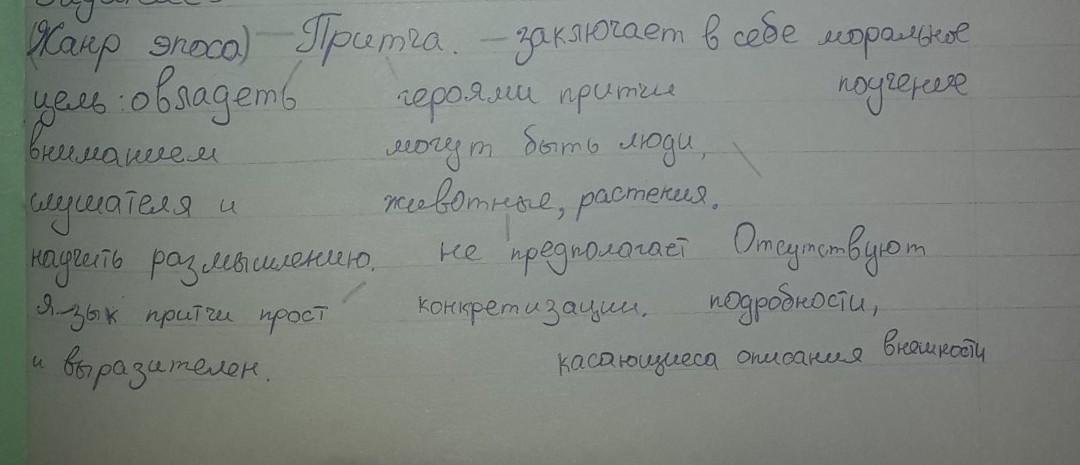 (Жанр эпоса) — Притча. — заключает в себе моральное
цель: овладеть героями притчи поучение
вниманием могут быть люди,
слушателя и животные, растения.
научить размышлению. не предполагает Отсутствуют
Язык притчи прост конкретизации. подробности,
и выразителен. касающиеса описания внешности